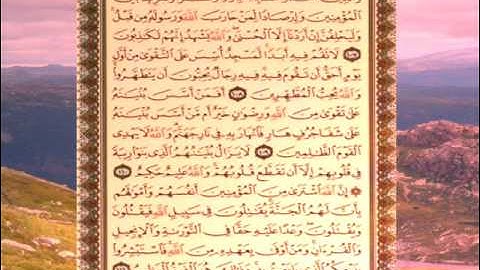 ٱلْمُؤْمِنِينَ وَإِرْصَادًا لِّمَنْ حَارَبَ ٱللَّهَ وَرَسُولَهُۥ مِن قَبْلُ
وَلَيَحْلِفُنَّ إِنْ أَرَدْنَآ إِلَّا ٱلْحُسْنَىٰ وَٱللَّهُ يَشْهَدُ إِنَّهُمْ لَكَٰذِبُونَ
١٠٧ لَا تَقُمْ فِيهِ أَبَدًا لَّمَسْجِدٌ أُسِّسَ عَلَى ٱلتَّقْوَىٰ مِنْ أَوَّلِ
يَوْمٍ أَحَقُّ أَن تَقُومَ فِيهِ فِيهِ رِجَالٌ يُحِبُّونَ أَن يَتَطَهَّرُوا۟
وَٱللَّهُ يُحِبُّ ٱلْمُطَّهِّرِينَ ١٠٨ أَفَمَنْ أَسَّسَ بُنْيَٰنَهُۥ
عَلَىٰ تَقْوَىٰ مِنَ ٱللَّهِ وَرِضْوَٰنٍ خَيْرٌ أَم مَّنْ أَسَّسَ بُنْيَٰنَهُۥ
عَلَىٰ شَفَا جُرُفٍ هَارٍ فَٱنْهَارَ بِهِۦ فِى نَارِ جَهَنَّمَ وَٱللَّهُ لَا يَهْدِى
ٱلْقَوْمَ ٱلظَّٰلِمِينَ ١٠٩ لَا يَزَالُ بُنْيَٰنُهُمُ ٱلَّذِى بَنَوْا۟ رِيبَةً
فِى قُلُوبِهِمْ إِلَّآ أَن تَقَطَّعَ قُلُوبُهُمْ وَٱللَّهُ عَلِيمٌ حَكِيمٌ ١١٠
۞ إِنَّ ٱللَّهَ ٱشْتَرَىٰ مِنَ ٱلْمُؤْمِنِينَ أَنفُسَهُمْ وَأَمْوَٰلَهُم
بِأَنَّ لَهُمُ ٱلْجَنَّةَ يُقَٰتِلُونَ فِى سَبِيلِ ٱللَّهِ فَيَقْتُلُونَ
وَيُقْتَلُونَ وَعْدًا عَلَيْهِ حَقًّا فِى ٱلتَّوْرَىٰةِ وَٱلْإِنجِيلِ
وَٱلْقُرْءَانِ وَمَنْ أَوْفَىٰ بِعَهْدِهِۦ مِنَ ٱللَّهِ فَٱسْتَبْشِرُوا۟
بِبَيْعِكُمُ ٱلَّذِى بَايَعْتُم بِهِۦ وَذَٰلِكَ هُوَ ٱلْفَوْزُ ٱلْعَظِيمُ ١١١